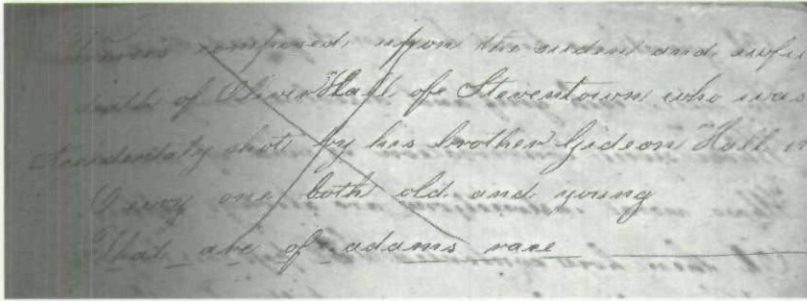 Verses composed, upon the sudent and awfu
death of Oliver Hall, of Steventown who was
Accidentaly shot, by his brother Gideon Hall
O evry one both old and young
That are of adams race